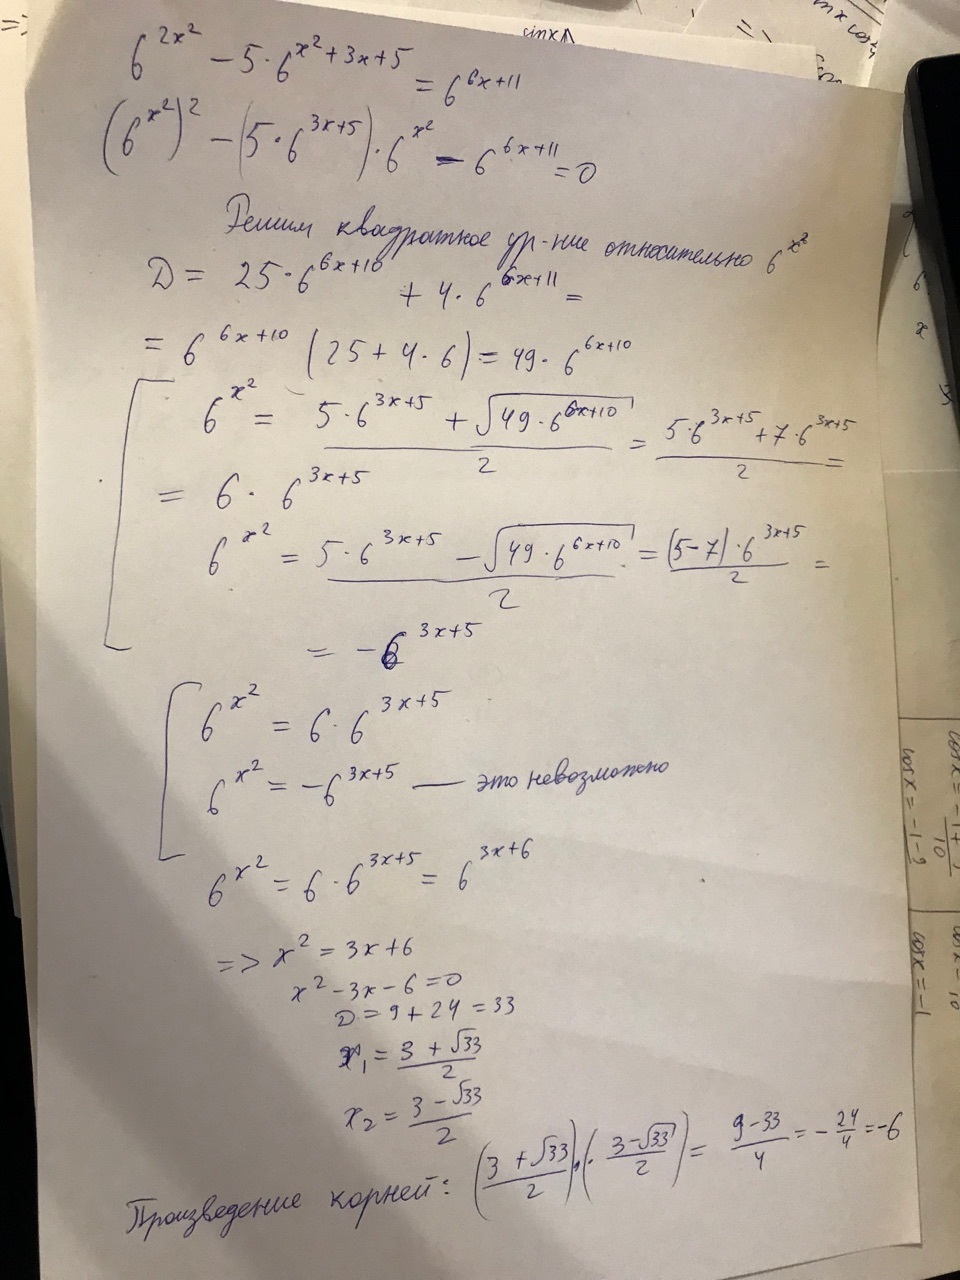 6^{2x^2} - 5·6^{x^2+3x+5} = 6^{6x+11}
(6^{x^2})^2 - (5·6^{3x+5})·6^{x^2} - 6^{6x+11} = 0
Решим квадратное ур-ние относительно 6^{x^2}
D = 25·6^{6x+10} + 4·6^{6x+11} =
= 6^{6x+10} (25 + 4·6) = 49·6^{6x+10}
[ 6^{x^2} = \frac{5·6^{3x+5} + \sqrt{49·6^{6x+10}}}{2} = \frac{5·6^{3x+5} + 7·6^{3x+5}}{2} =
= 6·6^{3x+5}
6^{x^2} = \frac{5·6^{3x+5} - \sqrt{49·6^{6x+10}}}{2} = \frac{(5-7)·6^{3x+5}}{2} =
= -6^{3x+5}
[ 6^{x^2} = 6·6^{3x+5}
6^{x^2} = -6^{3x+5} — это невозможно
6^{x^2} = 6·6^{3x+5} = 6^{3x+6}
=> x^2 = 3x+6
x^2 - 3x - 6 = 0
D = 9 + 24 = 33
x_1 = \frac{3 + \sqrt{33}}{2}
x_2 = \frac{3 - \sqrt{33}}{2}
Произведение корней: (\frac{3 + \sqrt{33}}{2})·(\frac{3 - \sqrt{33}}{2}) = \frac{9-33}{4} = -\frac{24}{4} = -6
sinx
cosx = -1